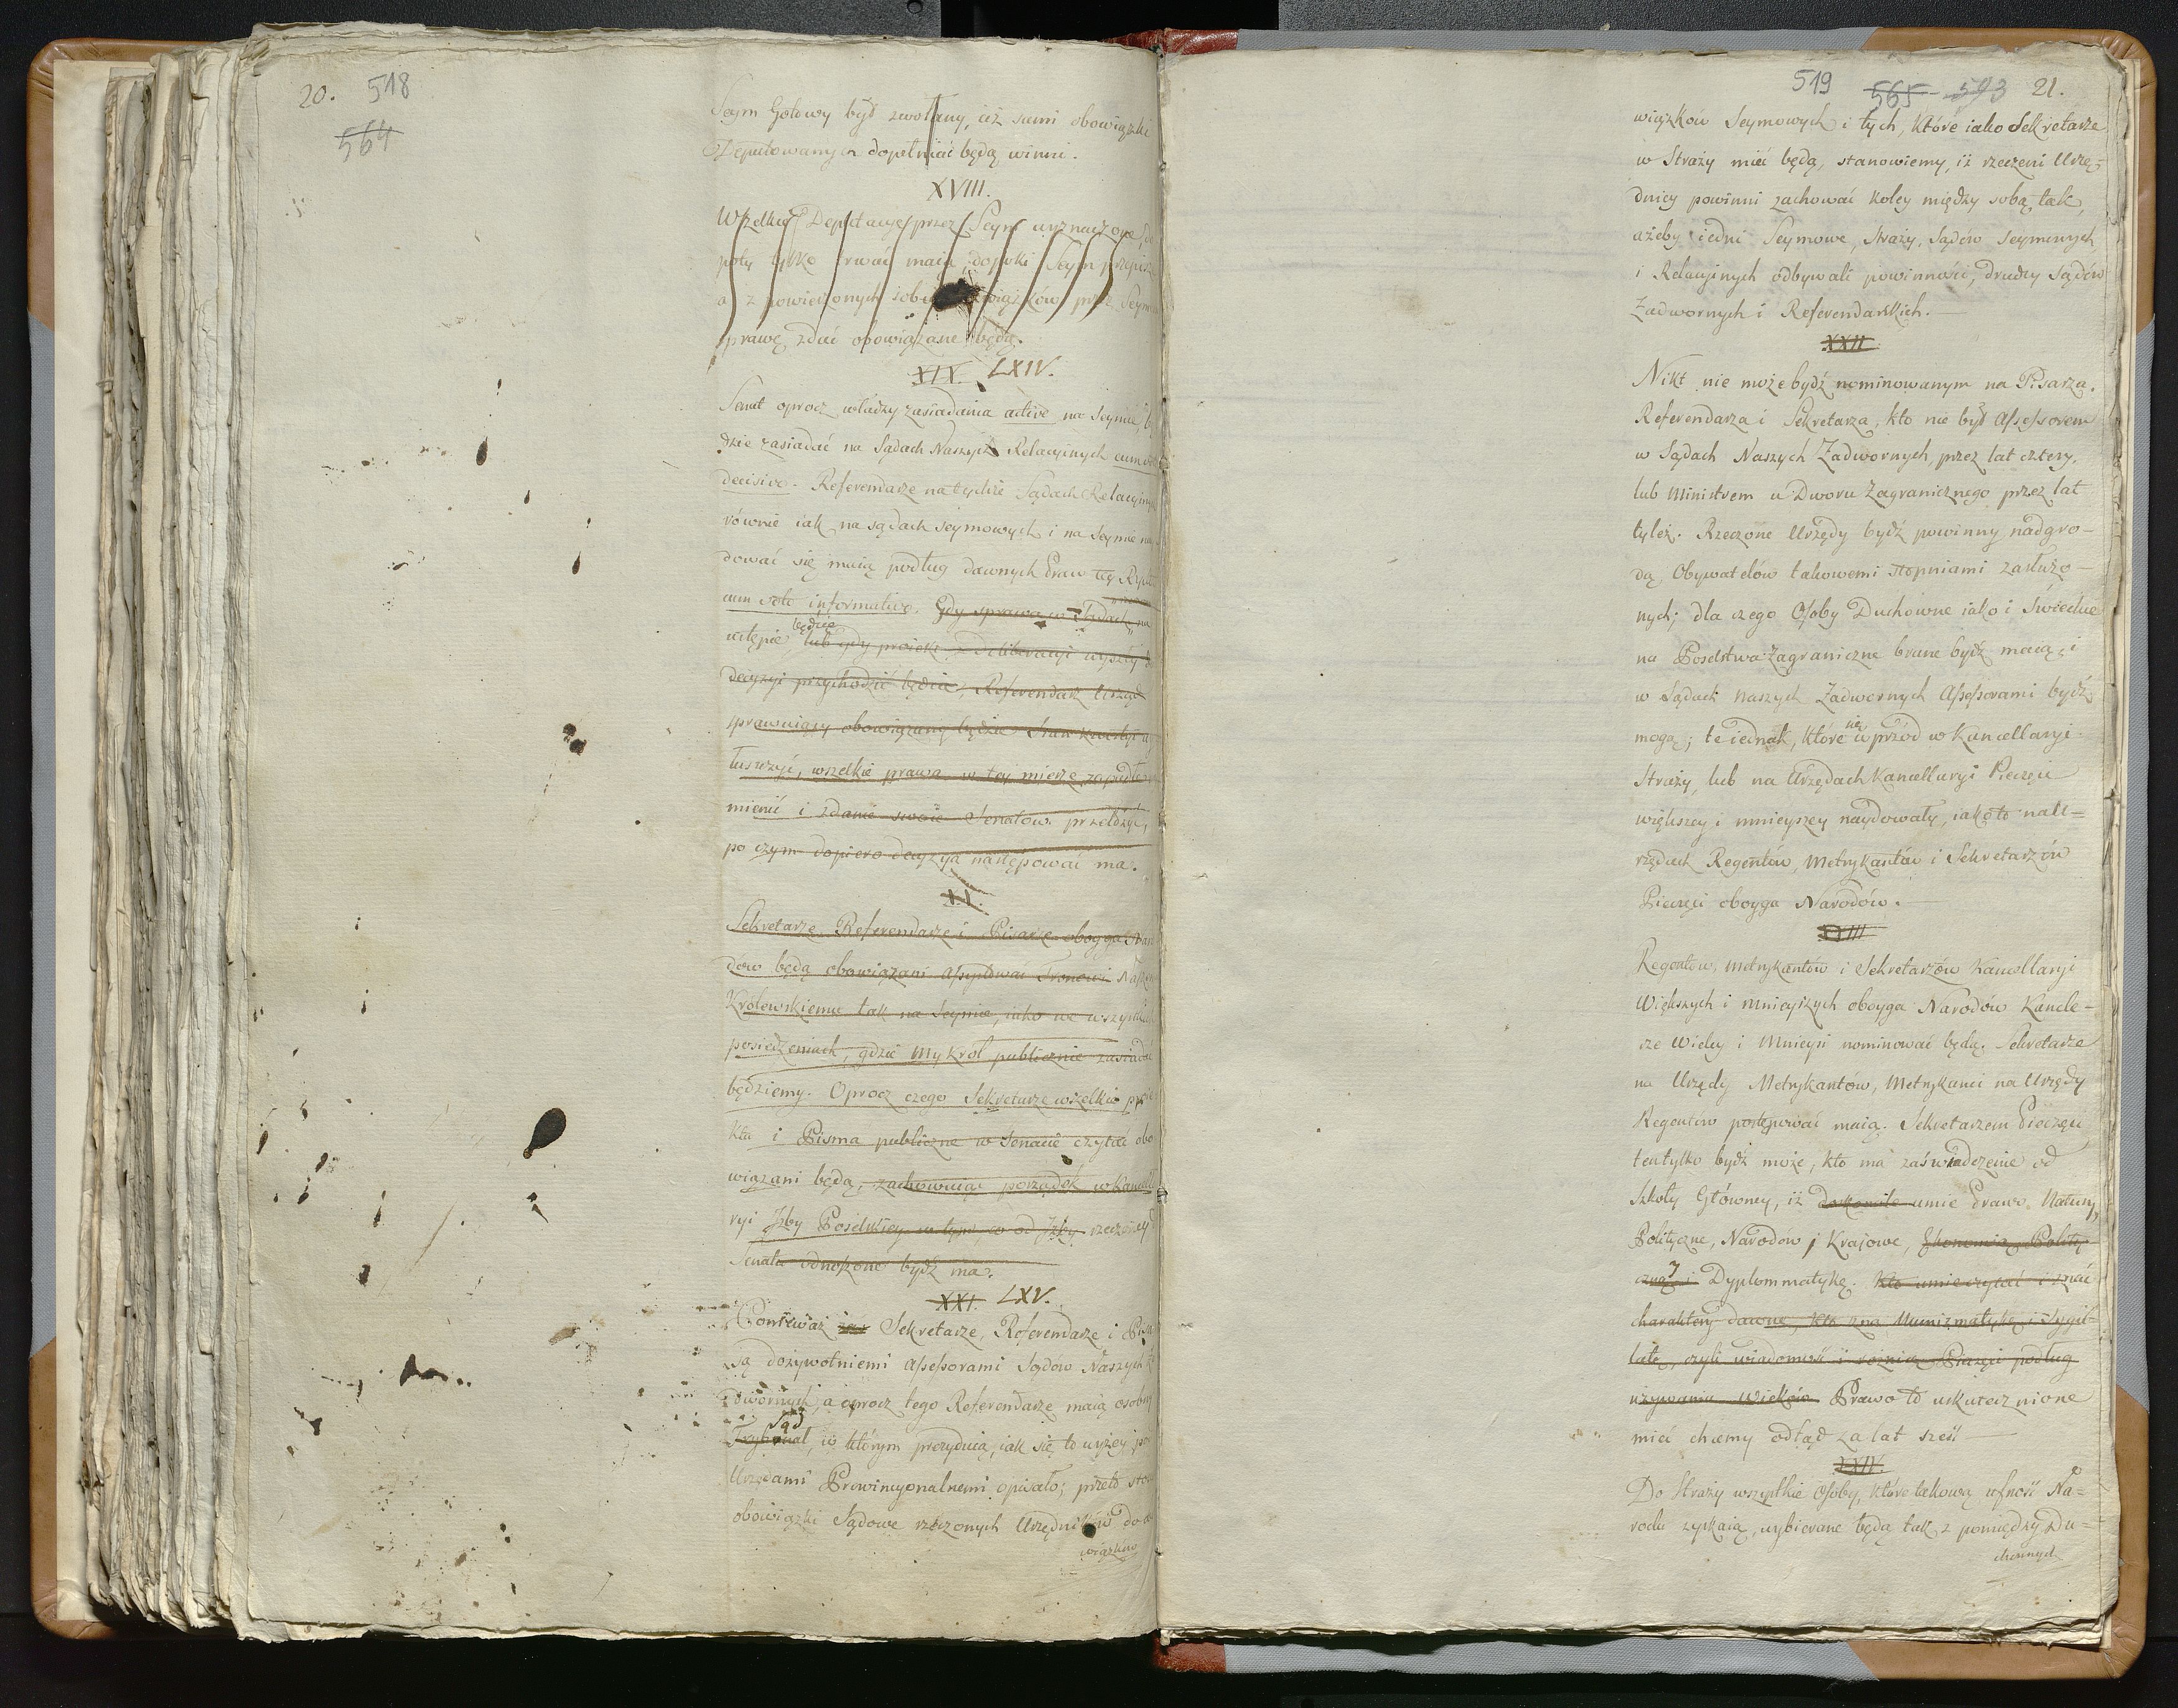 20. 518
564
Seym Gotowy był zwołany, ciż sami obowiązki
Deputowanych dopełniać będą winni.
XVIII.
Wszelkie Deputacye przez Seym wyznaczone, do
poty tylko trwać maią, dopoki Seym przepisze
a z powierzonych sobie obowiązków przed Seymem
sprawę zdać obowiązane będą.
XIX. LXIV.
Senat oprocz władzy zasiadania active na Seymie, bę
dzie zasiadać na Sądach Naszych Relacyinych cum voto
decisivo. Referendarze na tychże Sądach Relacyinych
równie iak na sądach seymowych i na Seymie
dować się maią podług dawnych Praw tey
cum voto informativo. Gdy sprawa w Sądach na
ustępie będzie, lub gdy proiekt z deliberacyi wyszły do
decyzyi przychodzić będzie, Referendarz Urząd
sprawuiący obowiązany będzie stan kwestyi
tuszyć, wszelkie prawa w tey mierze zapadłe
mienić i zdanie swoie Senatowi przełożyć,
po czym dopiero decyzya następować ma.
XX.
Sekretarze Referendarze i Pisarze oboyga Naro
dow będą obowiązani assystować Tronowi Naszemu
Królewskiemu tak na Seymie, iako we wszystkich
posiedzeniach, gdzie My Król publicznie zasiadać
będziemy. Oprocz czego Sekretarze wszelkie proie
kta i Pisma publiczne w Senacie czytać obo
wiązani będą, zachowuiąc porządek w Kancella
ryi Izby Poselskiey w tym, co od Izby rzeczoney do
Senatu odnoszone bydź ma.
XXI. LXV.
Ponieważ Sekretarze, Referendarze i Pisarze
są dożywotniemi Assessorami Sądow Naszych Za
dwornych, a oprocz tego Referendarze maią osobny
Sąd
Trybunał, w którym prezyduią, iak się to wyżey pod
Urzędami Prowincyonalnemi opisało; przeto
obowiązki Sądowe rzeczonych Urzędników do
wiązkow
519 565 593 21.
wiązków Seymowych i tych, które iako Sekretarze
w Straży mieć będą, stanowiemy, iż rzeczeni Urzę-
dnicy powinni zachować koley między sobą tak,
ażeby iedni Seymowe, Straży, Sądów Seymowych
i Relacyinych odbywali powinności, drudzy Sądów
Zadwornych i Referendarskich.
XXII.
Nikt nie może bydź nominowanym na Pisarza,
Referendarza i Sekretarza, kto nie był Assessorem
w Sądach Naszych Zadwornych, przez lat cztery,
lub Ministrem u Dworu Zagranicznego przez lat
tyleż. Rzeczone Urzędy bydź powinny nadgro-
dą Obywatelów takowemi stopniami zasłużo-
nych; dla czego Osoby Duchowne iako i Swieckie
na Poselstwa Zagraniczne brane bydź maią, i
w Sądach naszych Zadwornych Assessorami bydź
mogą; te iednak, które się wprzód w Kancellaryi
Straży, lub na Urzędach Kancellaryi Pieczęci
większey i mnieyszey naydowały, iako to na U-
rzędach Regentów, Metrykantów i Sekretarzów
Pieczęci oboyga Narodów.
XXIII
Regentów, Metrykantów i Sekretarzów Kancellaryi
Większych i Mnieyszych oboyga Narodów Kancle-
rze Wielcy i Mnieysi nominować będą. Sekretarze
na Urzędy Metrykantów, Metrykanci na Urzędy
Regentów postępować maią. Sekretarzem Pieczęci
ten tylko bydź może, kto ma zaświadczenie od
Szkoły Główney, iż doskonale umie Prawo Natury,
Polityczne, Narodów i Krajowe, Ekonomią Polity-
czną, i Dyplommatykę. Kto umie czytać i znać
charaktery dawne, kto zna Numizmatykę i Sygil-
latę, czyli wiadomość i rożnicę Pieczęci podług
używania Wieków. Prawo to uskutecznione
mieć chcemy odtąd za lat sześć
XXIV.
Do Straży wszystkie osoby, które takową ufność Na-
rodu zyskaią, wybierane będą tak z pomiędzy Du-
chownych